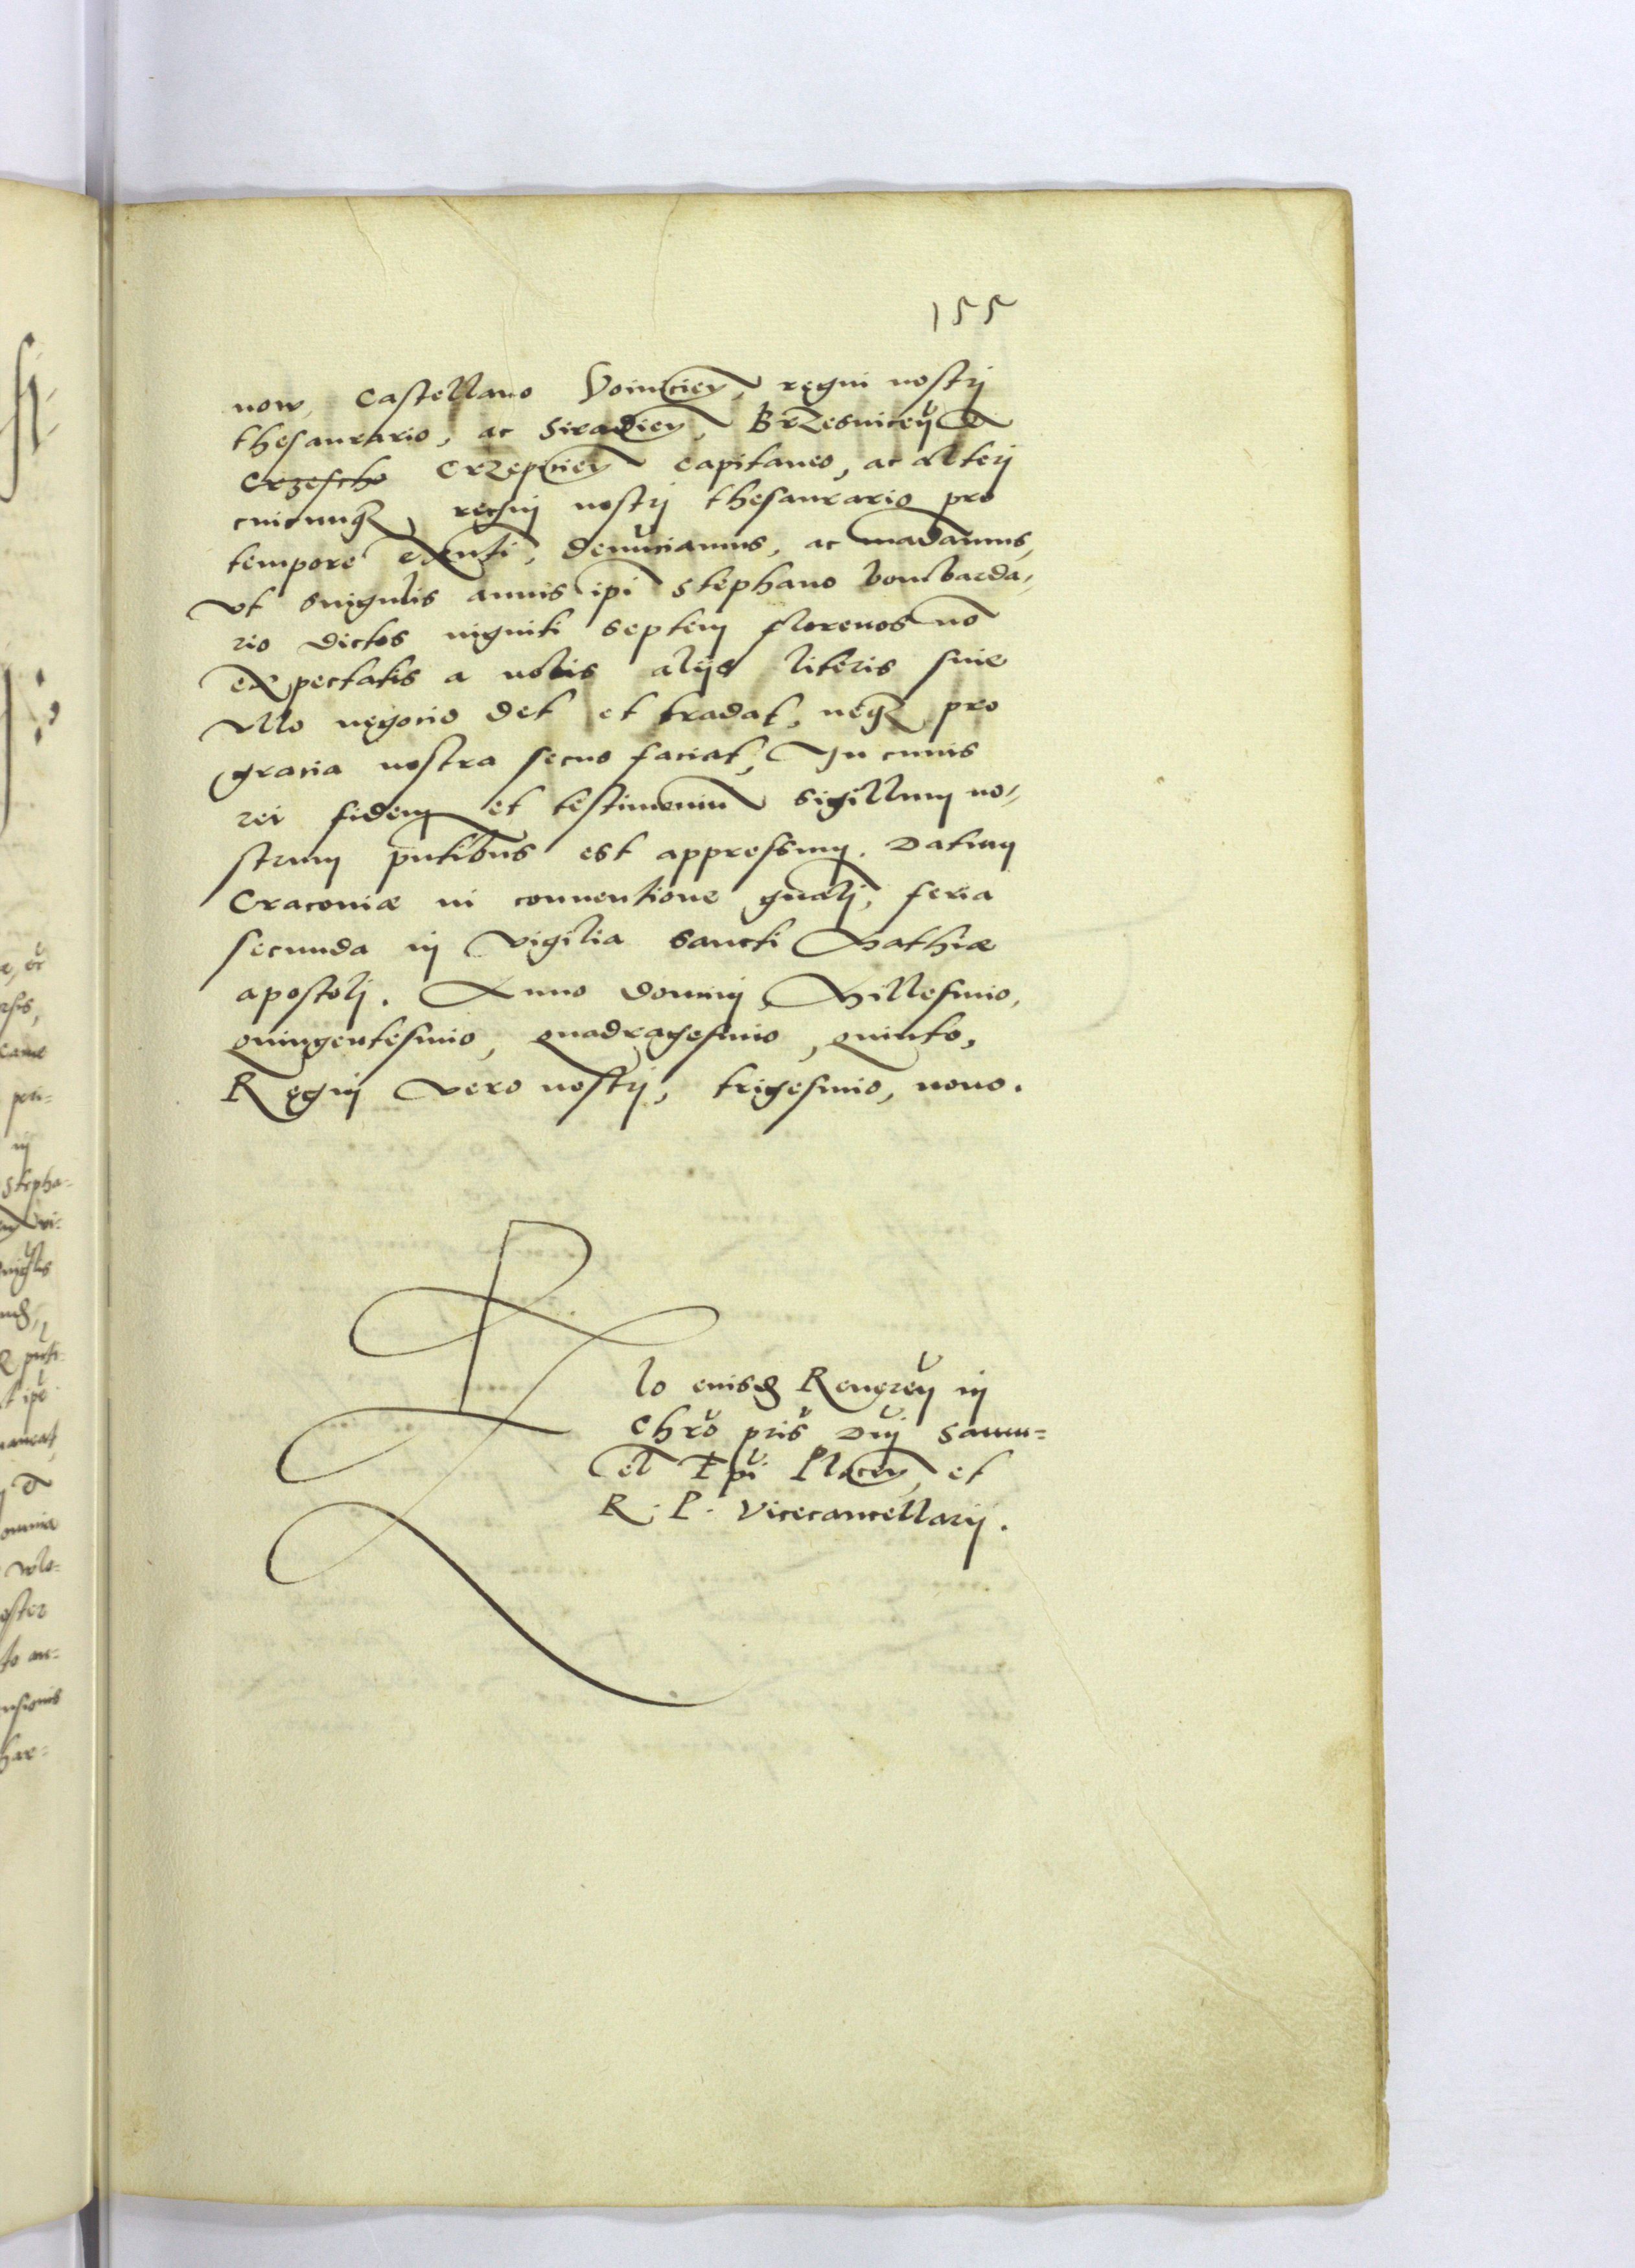 155
now, Castellano Voinicieñ, regni nostrj
thesaurario, ac Siradieñ, Brzesniceñ &
Crzescho Crzepiceñ Capitaneo, ac alterj
cuicunqȝ, regnj nostrj thesaurario pro
tempore exnti, denũciamus, ac mãdamus,
vt singulis annis ipi Stephano bombarda,,
rio dictos viginti septem florenos nõ
expectatis a nobis alijs literis sine
vllo negocio det et tradat, neqȝ pro
gracia nostra secus faciat, In cuius
rei fidem et testimoniũ sigillum no,,
strum pñtibus est appressum. Datum
Cracoviæ in conventione gñalj, feria
secunda in vigilia Sancti Mathiæ
apostolj. Anno dominj Millesimo,
quingentesimo, quadragesimo, quinto,
Regnj vero nostrj, trigesimo, nono.
Rlo eiusd Reverẽn in
Chrõ pris Dnj Samu=
el Epi Plocẽn, et
R. P. Vicecancellarij.